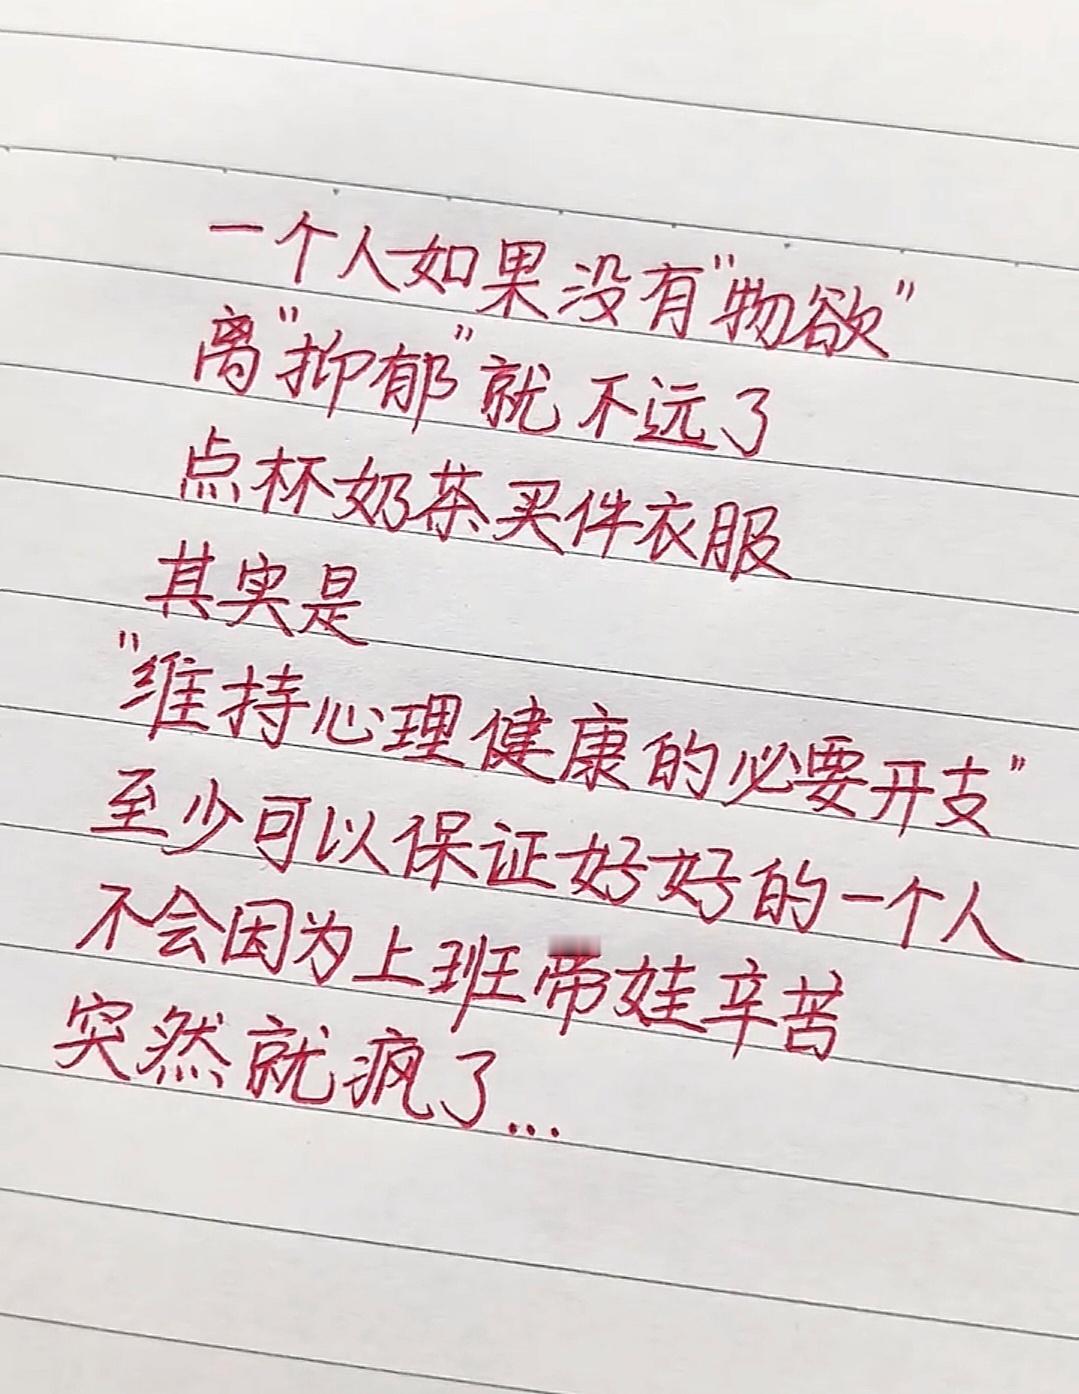 一个人如果没有"物欲"
离"抑郁"就不远了
点杯奶茶买件衣服
其实是
"维持心理健康的必要开支"
至少可以保证好好的一个人
不会因为上班带娃辛苦
突然就疯了...